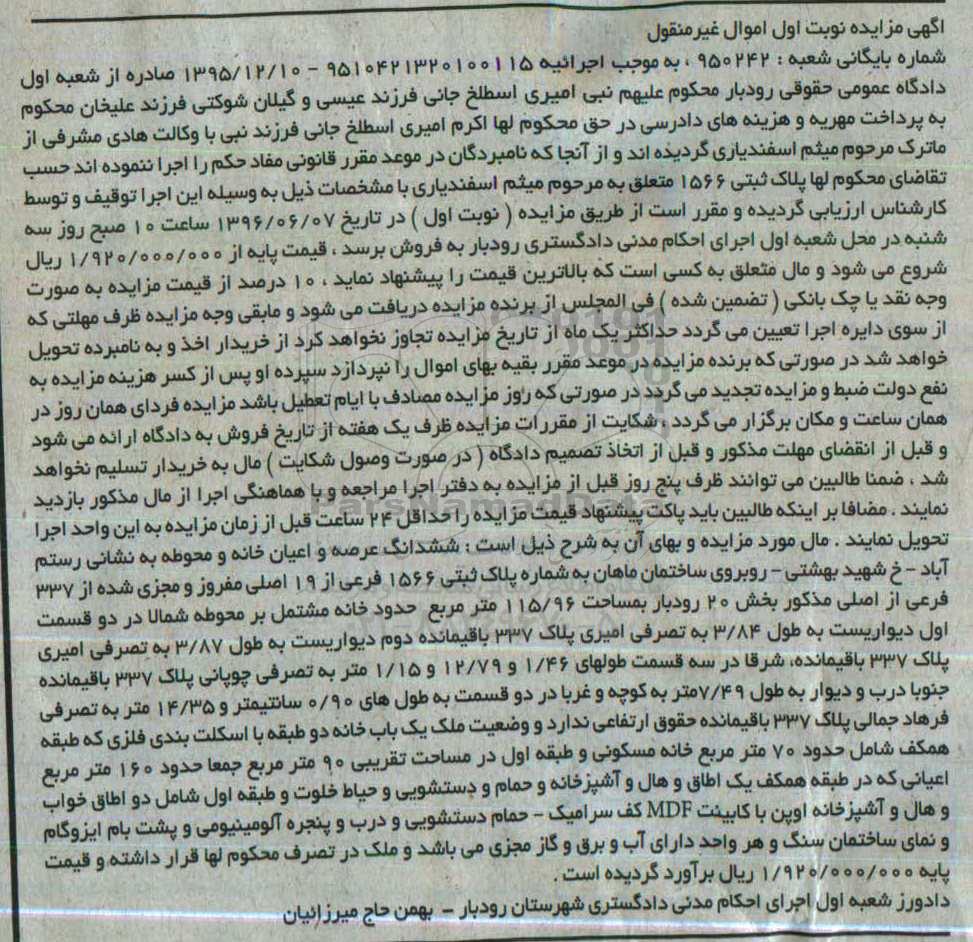 اگهی مزایده نوبت اول اموال غیرمنقول
شماره بایگانی شعبه : ۹۵۰۲۴۲ ، به موجب اجرائیه ۹۵۱۰۴۲۱۳۲۰۱۰۰۱۱۵ - ۱۳۹۵/۱۲/۱۰ صادره از شعبه اول
دادگاه عمومی حقوقی رودبار محکوم علیهم نبی امیری اسطلخ جانی فرزند عیسی و گیلان شوکتی فرزند علیخان محکوم
به پرداخت مهریه و هزینه های دادرسی در حق محکوم لها اکرم امیری اسطلخ جانی فرزند نبی با وکالت هادی مشرفی از
ماترک مرحوم میثم اسفندیاری گردیده اند و از آنجا که نامبردگان در موعد مقرر قانونی مفاد حکم را اجرا ننموده اند حسب
تقاضای محکوم لها پلاک ثبتی ۱۵۶۶ متعلق به مرحوم میثم اسفندیاری با مشخصات ذیل به وسیله این اجرا توقیف و توسط
کارشناس ارزیابی گردیده و مقرر است از طریق مزایده ( نوبت اول ) در تاریخ ۱۳۹۶/۰۶/۰۷ ساعت ۱۰ صبح روز سه
شنبه در محل شعبه اول اجرای احکام مدنی دادگستری رودبار به فروش برسد ، قیمت پایه از ۱/۹۲۰/۰۰۰/۰۰۰ ریال
شروع می شود و مال متعلق به کسی است که بالاترین قیمت را پیشنهاد نماید ، ۱۰ درصد از قیمت مزایده به صورت
وجه نقد یا چک بانکی ( تضمین شده ) فی المجلس از برنده مزایده دریافت می شود و مابقی وجه مزایده ظرف مهلتی که
از سوی دایره اجرا تعیین می گردد حداکثر یک ماه از تاریخ مزایده تجاوز نخواهد کرد از خریدار اخذ و به نامبرده تحویل
خواهد شد در صورتی که برنده مزایده در موعد مقرر بقیه بهای اموال را نپردازد سپرده او پس از کسر هزینه مزایده به
نفع دولت ضبط و مزایده تجدید می گردد در صورتی که روز مزایده مصادف با ایام تعطیل باشد مزایده فردای همان روز در
همان ساعت و مکان برگزار می گردد ، شکایت از مقررات مزایده ظرف یک هفته از تاریخ فروش به دادگاه ارائه می شود
و قبل از انقضای مهلت مذکور و قبل از اتخاذ تصمیم دادگاه ( در صورت وصول شکایت ) مال به خریدار تسلیم نخواهد
شد ، ضمنا طالبین می توانند ظرف پنج روز قبل از مزایده به دفتر اجرا مراجعه و با هماهنگی اجرا از مال مذکور بازدید
نمایند . مضافا بر اینکه طالبین باید پاکت پیشنهاد قیمت مزایده را حداقل ۲۴ ساعت قبل از زمان مزایده به این واحد اجرا
تحویل نمایند . مال مورد مزایده و بهای آن به شرح ذیل است : ششدانگ عرصه و اعیان خانه و محوطه به نشانی رستم
آباد - خ شهید بهشتی - روبروی ساختمان ماهان به شماره پلاک ثبتی ۱۵۶۶ فرعی از ۱۹ اصلی مفروز و مجزی شده از ۳۳۷
فرعی از اصلی مذکور بخش ۲۰ رودبار بمساحت ۱۱۵/۹۶ متر مربع حدود خانه مشتمل بر محوطه شمالا در دو قسمت
اول دیواریست به طول ۳/۸۴ به تصرفی امیری پلاک ۳۳۷ باقیمانده دوم دیواریست به طول ۳/۸۷ به تصرفی امیری
پلاک ۳۳۷ باقیمانده، شرقا در سه قسمت طولهای ۱/۴۶ و ۱۲/۷۹ و ۱/۱۵ متر به تصرفی چوپانی پلاک ۳۳۷ باقیمانده
جنوبا درب و دیوار به طول ۷/۴۹متر به کوچه و غربا در دو قسمت به طول های ۰/۹۰ سانتیمتر و ۱۴/۳۵ متر به تصرفی
فرهاد جمالی پلاک ۳۳۷ باقیمانده حقوق ارتفاعی ندارد و وضعیت ملک یک باب خانه دو طبقه با اسکلت بندی فلزی که طبقه
همکف شامل حدود ۷۰ متر مربع خانه مسکونی و طبقه اول در مساحت تقریبی ۹۰ متر مربع جمعا حدود ۱۶۰ متر مربع
اعیانی که در طبقه همکف یک اطاق و هال و آشپزخانه و حمام و دستشویی و حیاط خلوت و طبقه اول شامل دو اطاق خواب
و هال و آشپزخانه اوپن با کابینت MDF کف سرامیک - حمام دستشویی و درب و پنجره آلومینیومی و پشت بام ایزوگام
و نمای ساختمان سنگ و هر واحد دارای آب و برق و گاز مجزی می باشد و ملک در تصرف محکوم لها قرار داشته و قیمت
پایه ۱/۹۲۰/۰۰۰/۰۰۰ ریال برآورد گردیده است .
دادورز شعبه اول اجرای احکام مدنی دادگستری شهرستان رودبار - بهمن حاج میرزائیان